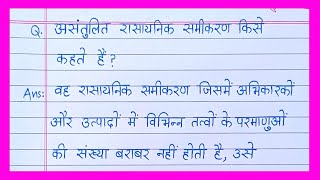 Q. असंतुलित रासायनिक समीकरण किसे
कहते हैं?
Ans: वह रासायनिक समीकरण जिसमें अभिकारकों
और उत्पादों में विभिन्न तत्वों के परमाणुओं
की संख्या बराबर नहीं होती है, उसे